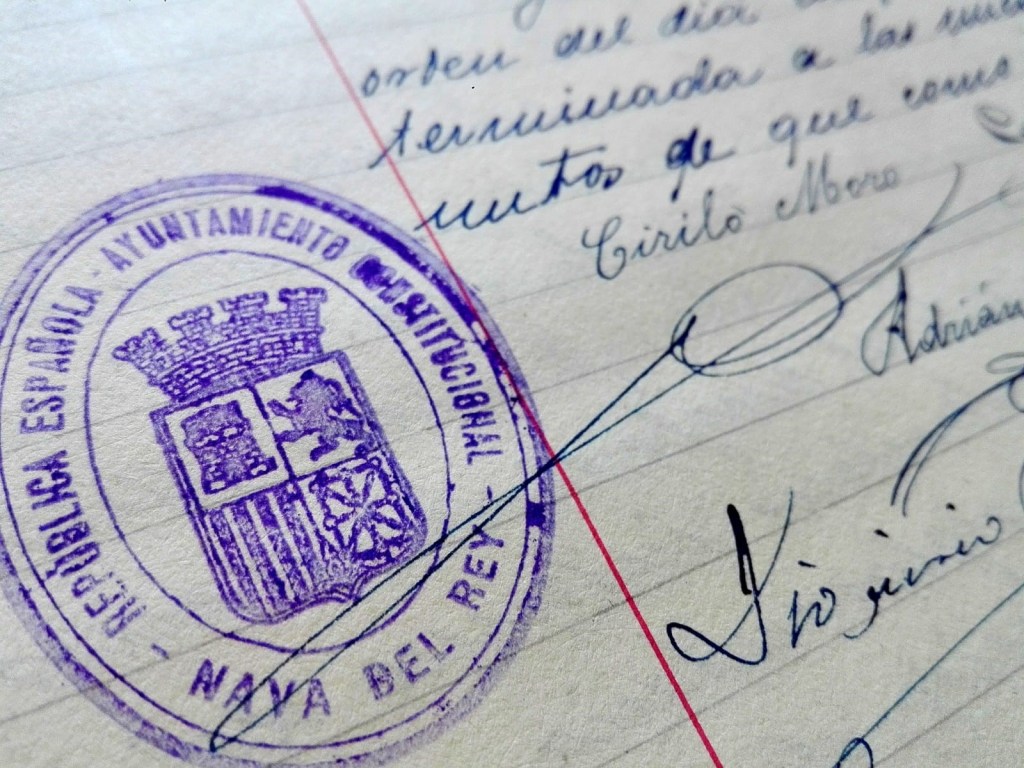 orden del dia
terminada a las
nutos de que como
Cirilo Moro
Adrián
REPÚBLICA ESPAÑOLA - AYUNTAMIENTO CONSTITUCIONAL
- NAVA DEL REY -